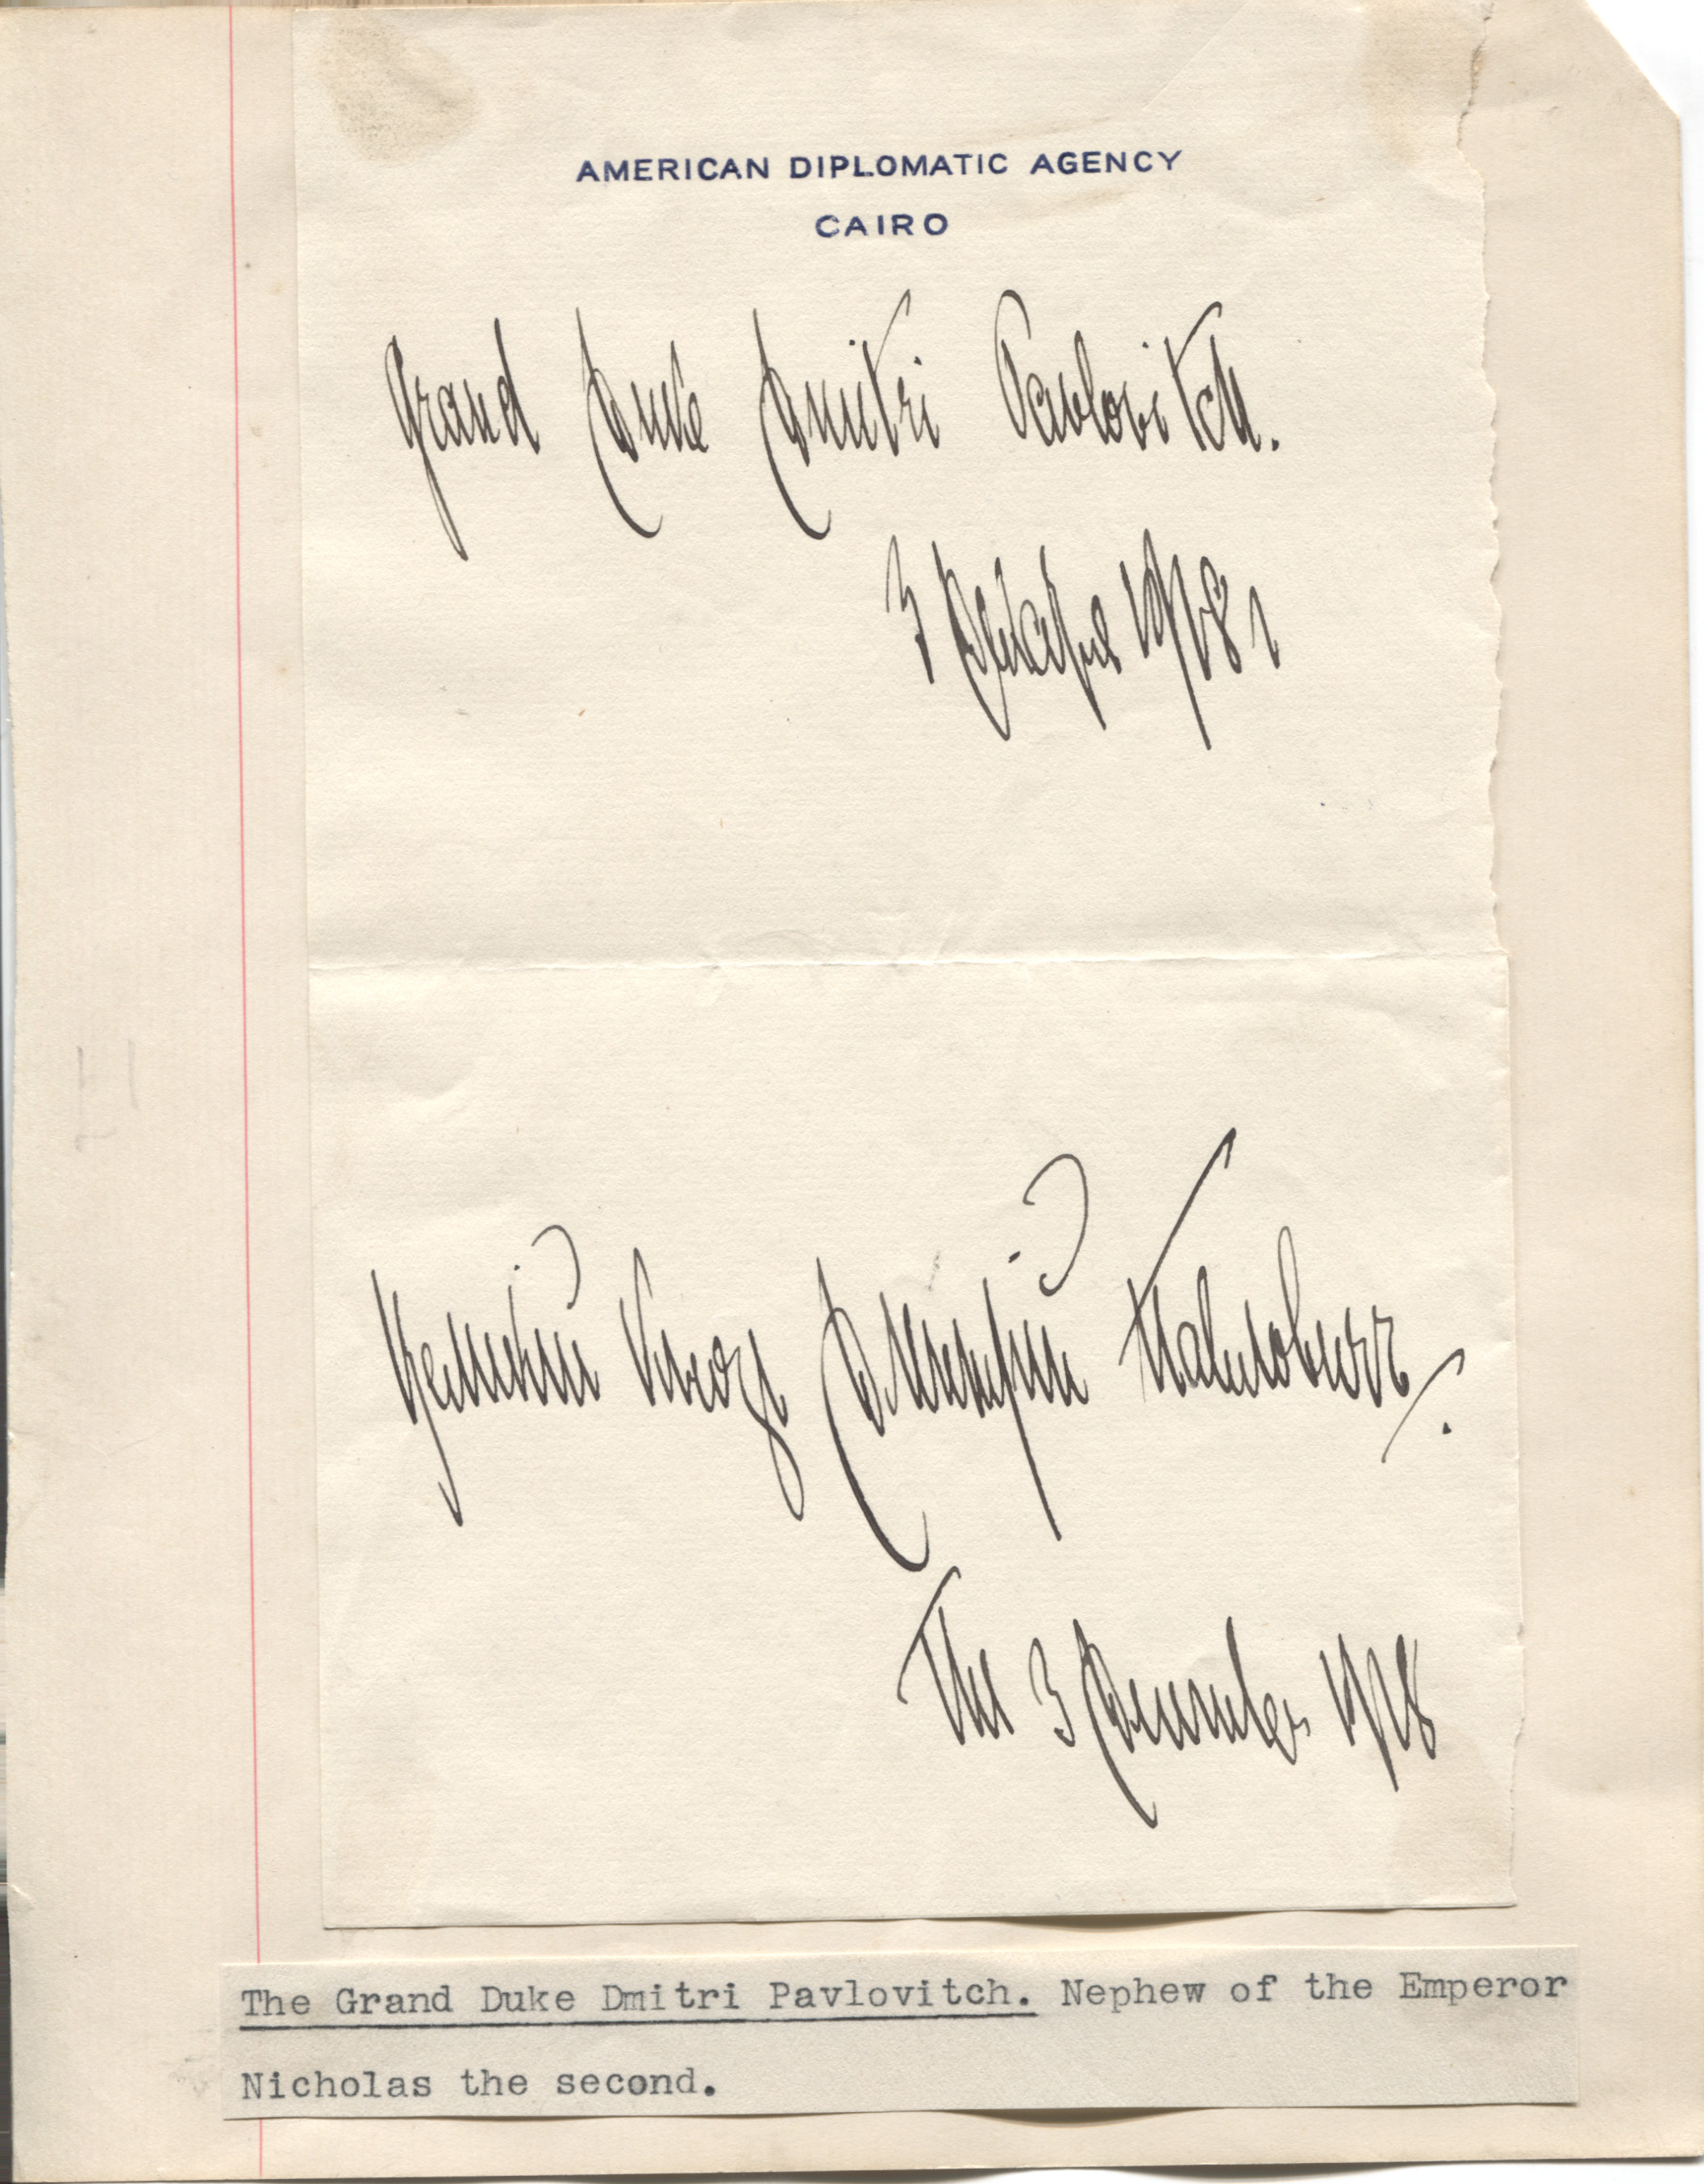 AMERICAN DIPLOMATIC AGENCY
CAIRO
Grand Duke Dmitri Pavlovitch.
3 Декабря 1918 г
Великий Князь Дмитрий Павловичъ.
The 3 December 1918
The Grand Duke Dmitri Pavlovitch. Nephew of the Emperor
Nicholas the second.